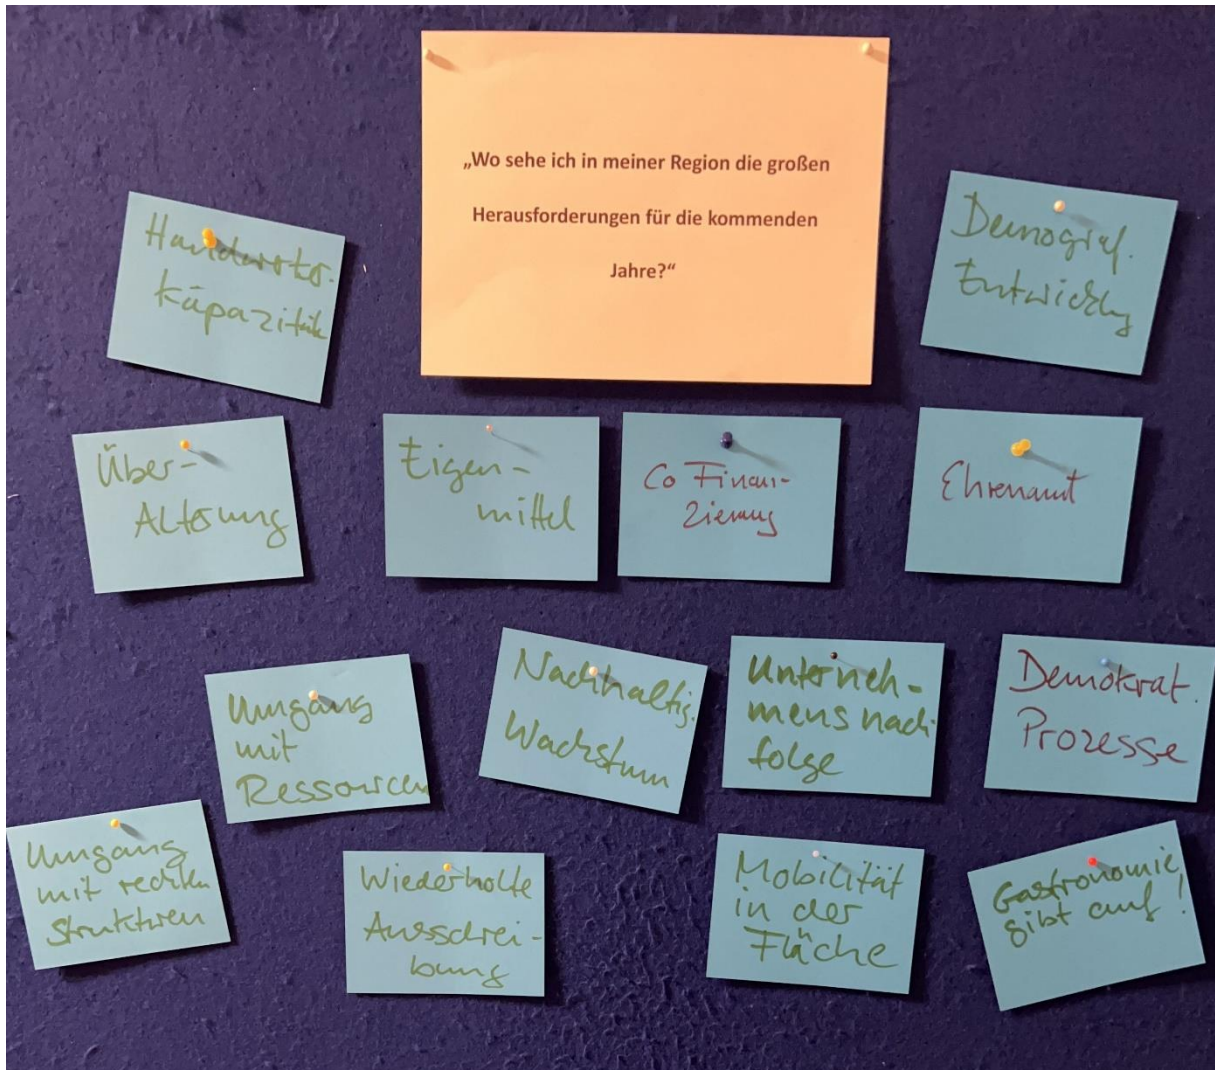 „Wo sehe ich in meiner Region die großen
Herausforderungen für die kommenden
Jahre?“
Handwerker-
kapazität
Demograf.
Entwicklg
Über-
Alterung
Eigen-
mittel
Co Finan-
zierung
Ehrenamt
Umgang
mit
Ressourcen
Nachhaltig.
Wachstum
Unterneh-
mensnach
folge
Demokrat.
Prozesse
Umgang
mit rechten
Strukturen
Wiederholte
Ausschrei-
bung
Mobilität
in der
Fläche
Gastronomie
gibt auf!